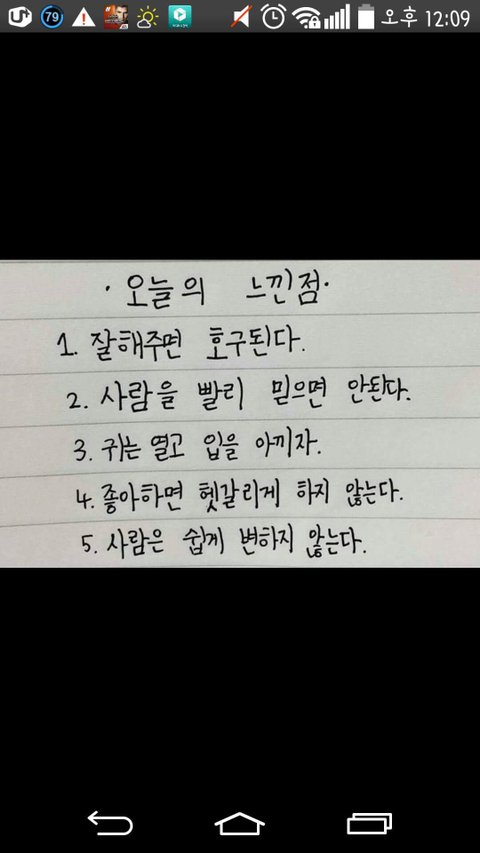 79
오후 12:09
·오늘의 느낀점·
1. 잘해주면 호구된다.
2. 사람을 빨리 믿으면 안된다.
3. 귀는 열고 입을 아끼자.
4. 좋아하면 헷갈리게 하지 않는다.
5. 사람은 쉽게 변하지 않는다.